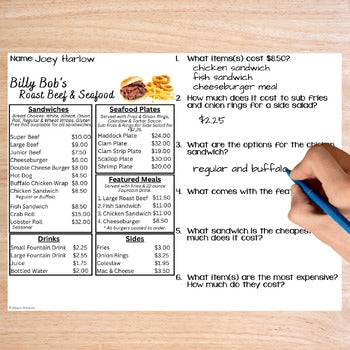 Name Joey Harlow
Billy Bob's
Roast Beef & Seafood
Sandwiches
Bread Choice: White, Wheat, Onion
Roll, Regular & Wheat Wraps, Gluten
Free Roll available for all sandwiches
Super Beef $10.00
Large Beef $9.00
Junior Beef $7.50
Cheeseburger $6.00
Double Cheese Burger $8.00
Hot Dog $4.50
Buffalo Chicken Wrap $8.00
Chicken Sandwich $9.00
Regular or Buffalo
Fish Sandwich $8.50
Crab Roll $15.00
Lobster Roll $32.00
Seasonal
Drinks
Small Fountain Drink $2.25
Large Fountain Drink $2.55
Juice $1.75
Bottled Water $2.00
Seafood Plates
Served with Fries & Onion Rings,
Coleslaw & Tartar Sauce.
Sub Fries & Rings for Side Salad for
+$2.25
Haddock Plate $24.00
Clam Plate $32.00
Clam Strip Plate $19.00
Scallop Plate $24.00
Shrimp Plate $20.00
Featured Meals
Served with Fries & 22 ounce
Fountain Drink.
1. Large Roast Beef $11.50
2. Fish Sandwich $11.00
3. Chicken Sandwich $11.00
4. Cheeseburger $8.50
* All burgers cooked to order.
Sides
Fries $3.00
Onion Rings $3.25
Coleslaw $1.95
Mac & Cheese $3.50
1. What items(s) cost $8.50?
chicken sandwich
fish sandwich
cheeseburger meal
2. How much does it cost to sub fries
and onion rings for a side salad?
$2.25
3. What are the options for the chicken
sandwich?
regular and buffalo
4. What comes with the feat
5. What sandwich is the cheapes
much does it cost?
6. What item(s) are the most expensive?
How much do they cost?